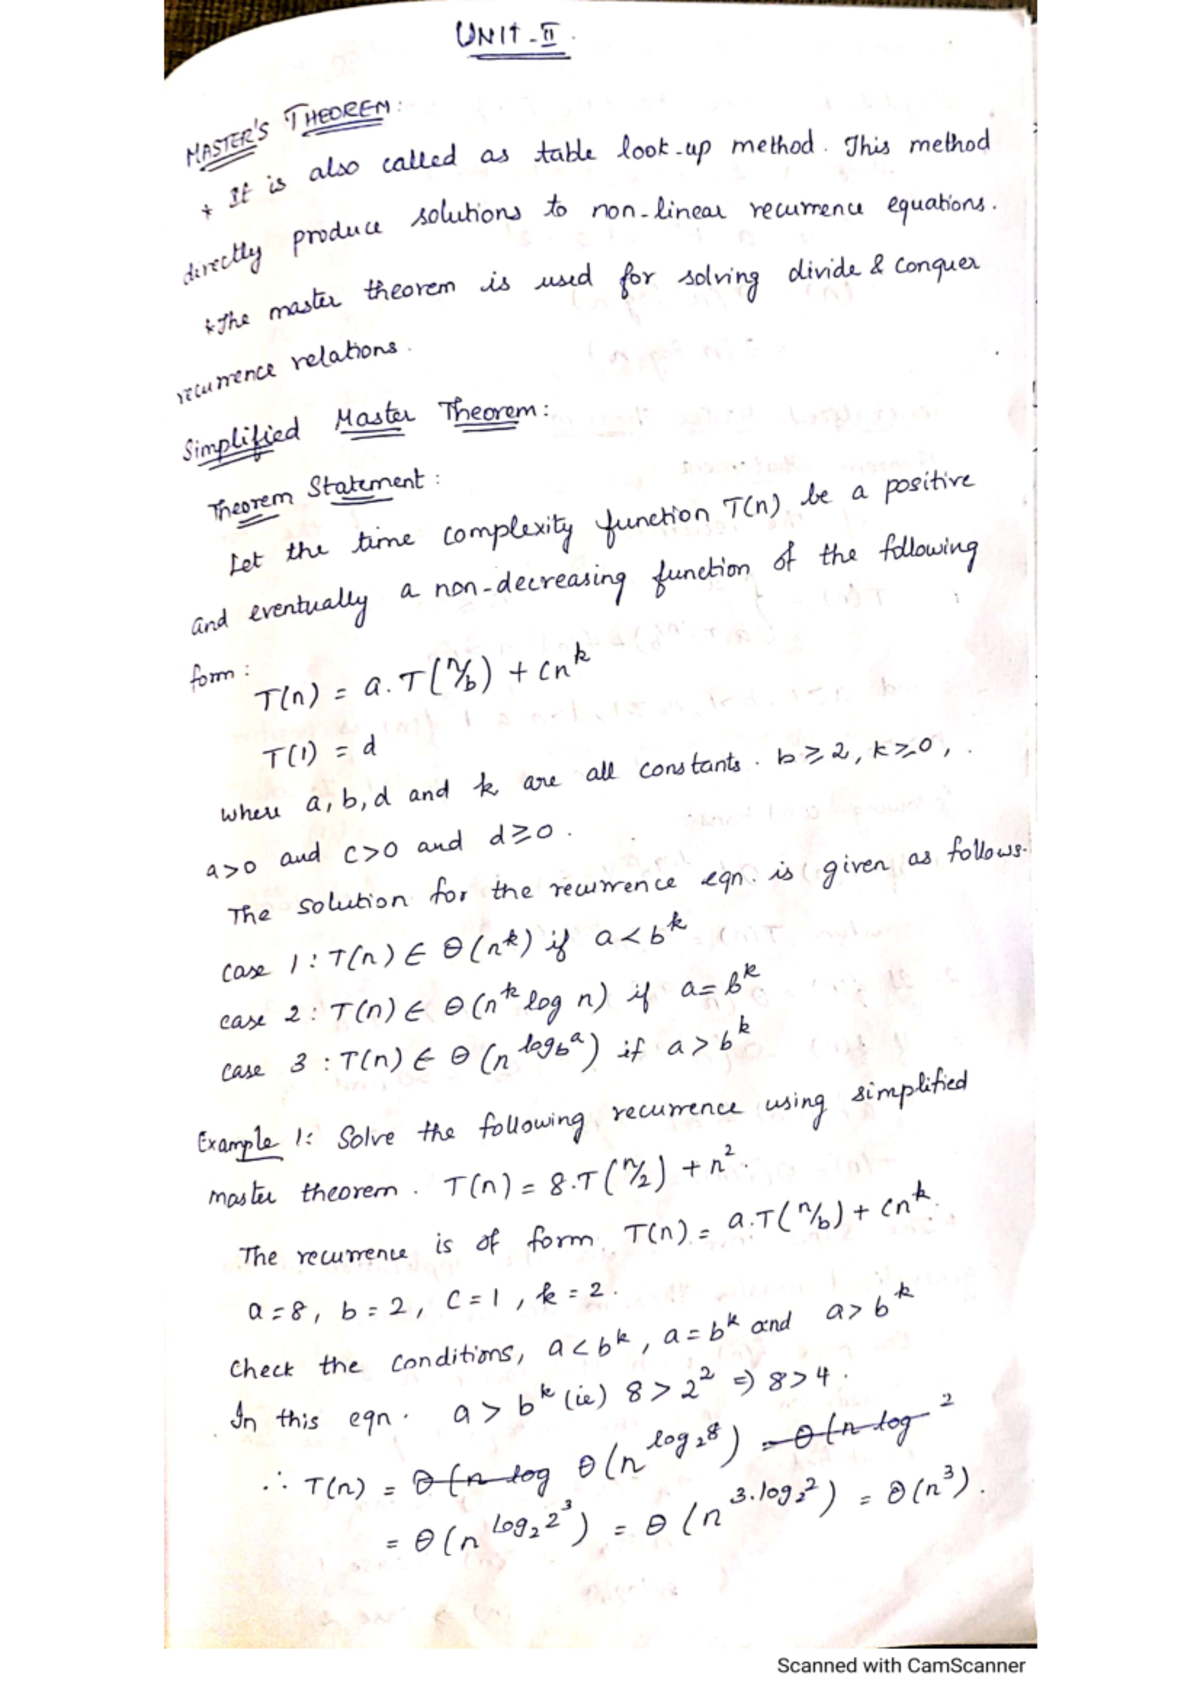 UNIT-II.
MASTER'S THEOREM:
* It is also called as table look-up method. This method
directly produce solutions to non-linear recurrence equations.
*The master theorem is used for solving divide & conquer
recurrence relations.
Simplified Master Theorem:
Theorem Statement:
Let the time complexity function T(n) be a positive
and eventually a non-decreasing function of the following
form:
T(n) = a.T(n/b) + cn^k
T(1) = d
where a, b, d and k are all constants. b≥2, k≥0,
a>0 and c>0 and d≥0.
The solution for the recurrence eqn. is given as follows.
case 1: T(n) ∈ Θ(n^k) if a<b^k
case 2: T(n) ∈ Θ(n^k log n) if a=b^k
case 3: T(n) ∈ Θ(n^log_b a) if a>b^k
Example 1: Solve the following recurrence using simplified
master theorem. T(n) = 8.T(n/2) + n².
The recurrence is of form T(n) = a.T(n/b) + cn^k.
a=8, b=2, C=1, k=2.
Check the conditions, a<b^k, a=b^k and a>b^k
In this eqn. a>b^k (ie) 8>2² ⇒ 8>4.
∴ T(n) = Θ(n log Θ(n^log_2 8) = Θ(n log 2
= Θ(n^log_2 2³) = Θ(n^3.log_2 2) = Θ(n³).
Scanned with CamScanner